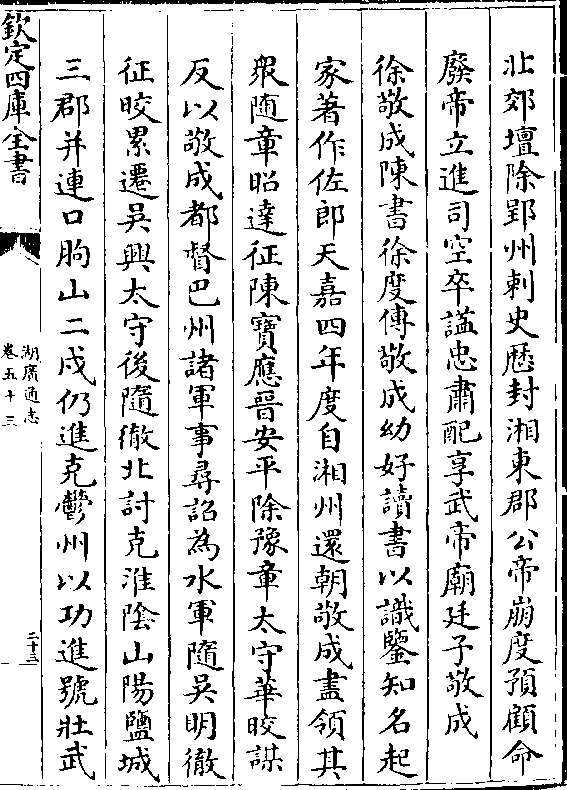 北郊壇除郢州刺史歴封湘東郡公帝崩度預顧命
廢帝立進司空卒諡忠肅配享武帝廟廷子敬成
徐敬成陳書徐度傳敬成幼好讀書以識鑒知名起
家著作佐郎天嘉四年度自湘州還朝敬成盡領其
衆随章昭達征陳寶應晉安平除豫章太守華皎謀
反以敬成都督巴州諸軍事尋詔為水軍隨吳明徹
征皎累遷吳興太守後隨徹北討克淮陰山陽鹽城
三郡并連口朐山二戍仍進克鬱州以功進號壯武
欽定四庫全書
湖廣通志
卷五十三
二十三